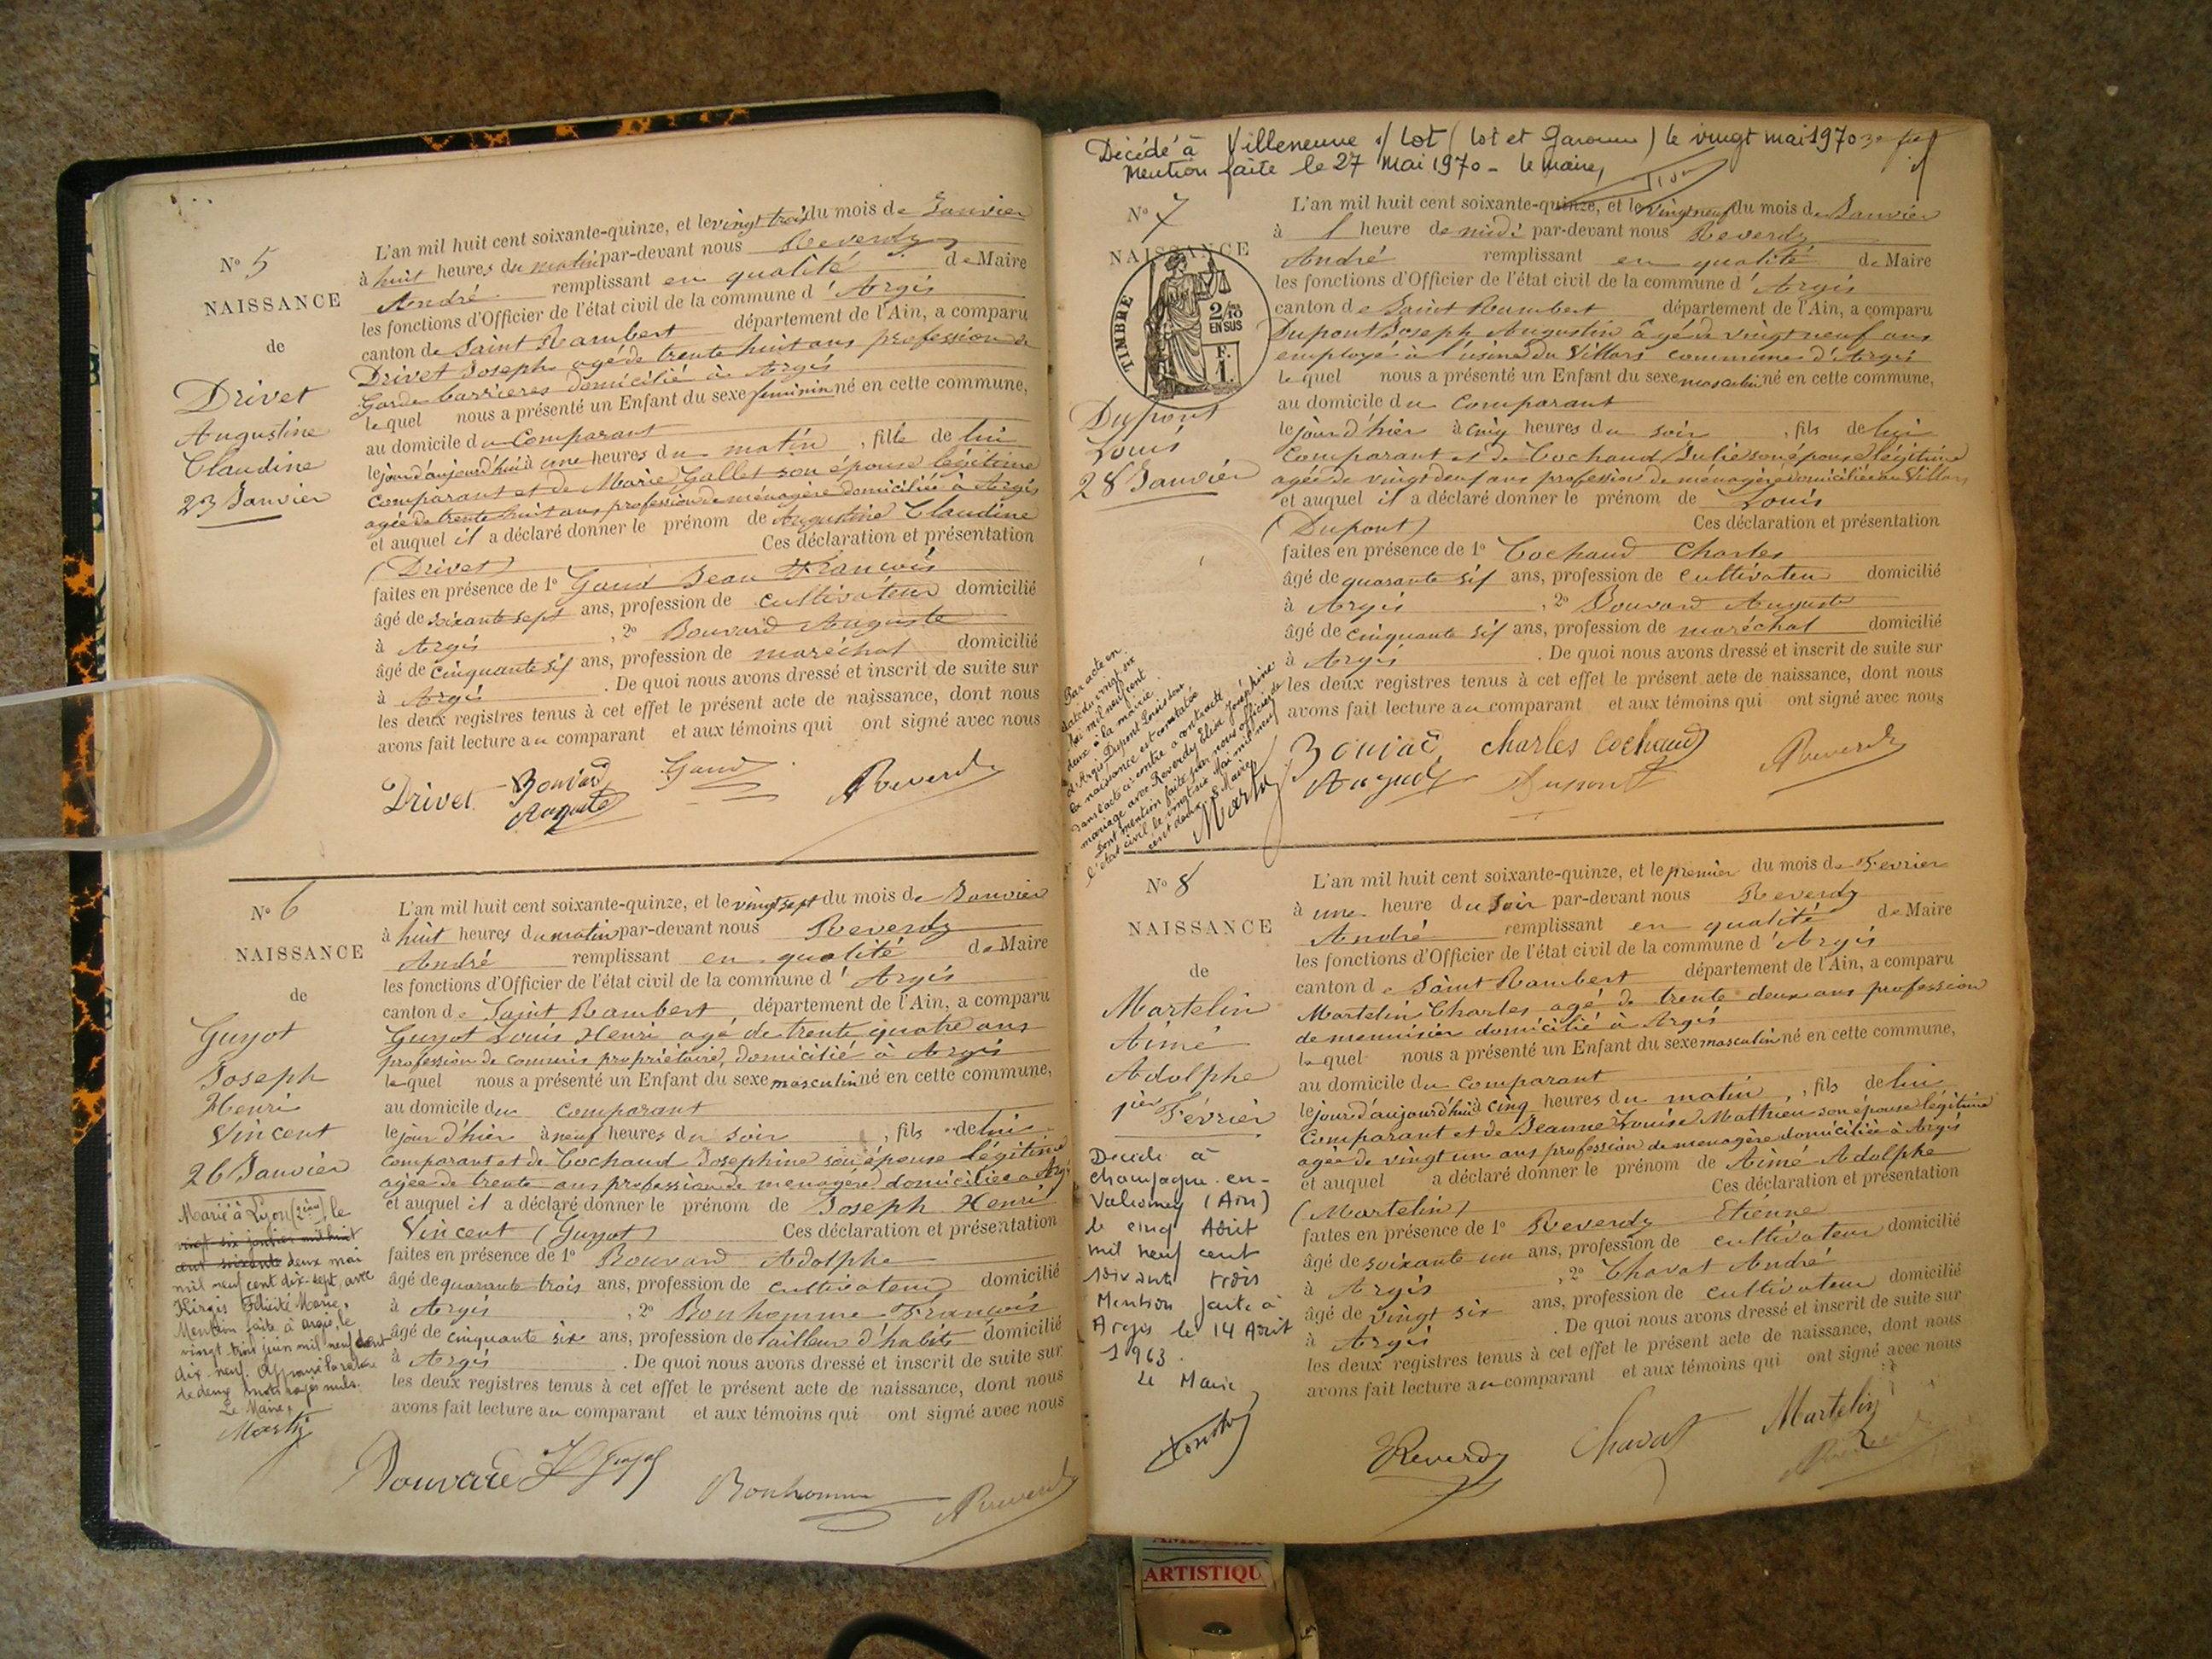 N° 5
NAISSANCE
de
Drivet
Augustine
Claudine
23 Janvier
L'an mil huit cent soixante-quinze, et le vingt trois du mois de Janvier
à huit heures du matin par-devant nous Reverdy
André remplissant en qualité de Maire
les fonctions d'Officier de l'état civil de la commune d'Argis
canton de Saint Rambert département de l'Ain, a comparu
Drivet Joseph agé de trente huit ans profession de
Garde barrières domicilié à Argis
lequel nous a présenté un Enfant du sexe feminin né en cette commune,
au domicile du Comparant
le jour d'aujourd'hui à une heures du matin, fille de lui
Comparant et de Marie Gallet son épouse légitime
agée de trente huit ans profession de ménagère domiciliée à Argis
et auquel il a déclaré donner le prénom de Augustine Claudine
(Drivet) Ces déclaration et présentation
faites en présence de 1° Gaud Jean François
âgé de soixante sept ans, profession de cultivateur domicilié
à Argis, 2° Bouvard Auguste
âgé de cinquante six ans, profession de maréchal domicilié
à Argis. De quoi nous avons dressé et inscrit de suite sur
les deux registres tenus à cet effet le présent acte de naissance, dont nous
avons fait lecture au comparant et aux témoins qui ont signé avec nous
Drivet Bouvard Auguste Gaud AReverdy
N° 6
NAISSANCE
de
Guyot
Joseph
Henri
Vincent
26 Janvier
Marié à Lyon (2ème) le
vingt six janvier mil huit
cent soixante deux mai
mil neuf cent dix-sept, avec
Félicité Marie.
Mention faite à Argis, le
vingt trois juin mil neuf cent
dix neuf. Approuvé la rature
de deux mots rayés nuls.
Le Maire,
L'an mil huit cent soixante-quinze, et le vingt sept du mois de Janvier
à huit heures du matin par-devant nous Reverdy
André remplissant en qualité de Maire
les fonctions d'Officier de l'état civil de la commune d'Argis
canton de Saint Rambert département de l'Ain, a comparu
Guyot Louis Henri agé de trente quatre ans
profession de commis propriétaire, domicilié à Argis
lequel nous a présenté un Enfant du sexe masculin né en cette commune,
au domicile du comparant
le jour d'hier à neuf heures du soir, fils de lui
comparant et de Cochaud Josephine son épouse légitime
agée de trente ans profession de menagere domiciliée à Argis
et auquel il a déclaré donner le prénom de Joseph Henri
Vincent (Guyot) Ces déclaration et présentation
faites en présence de 1° Bouvard Adolphe
âgé de quarante trois ans, profession de cultivateur domicilié
à Argis, 2° Bonhomme François
âgé de cinquante six ans, profession de tailleur d'habits domicilié
à Argis. De quoi nous avons dressé et inscrit de suite sur
les deux registres tenus à cet effet le présent acte de naissance, dont nous
avons fait lecture au comparant et aux témoins qui ont signé avec nous
Bouvard Guyot Bonhomme AReverdy
Décédé à Villeneuve s/ Lot (Lot et Garonne) le vingt mai 1970
Mention faite le 27 Mai 1970 - le maire,
N° 7
NAISSANCE
TIMBRE
2/10
EN SUS
F.
1.
Dupont
Louis
28 Janvier
Par acte en
date du vingt six
mai mil neuf cent
deux à la mairie
d'Argis Dupont Louis dont
la naissance est constatée
dans l'acte ci contre a contracté
mariage avec Reverdy Elisa Joséphine
Dont mention faite par nous officier de
l'état civil le vingt six Mai mil neuf
cent deux. Le Maire,
L'an mil huit cent soixante-quinze, et le vingt neuf du mois de Janvier
à 1 heure de midi par-devant nous Reverdy
André remplissant en qualité de Maire
les fonctions d'Officier de l'état civil de la commune d'Argis
canton de Saint Rambert département de l'Ain, a comparu
Dupont Joseph Augustin âgé de vingt neuf ans
employé à l'usine du Villars commune d'Argis
lequel nous a présenté un Enfant du sexe masculin né en cette commune,
au domicile du Comparant
le jour d'hier à cinq heures du soir, fils de lui
Comparant et de Cochaud Julie son épouse légitime
agée de vingt deux ans profession de ménagère domiciliée au Villars
et auquel il a déclaré donner le prénom de Louis
(Dupont) Ces déclaration et présentation
faites en présence de 1° Cochaud Charles
âgé de quarante six ans, profession de Cultivateur domicilié
à Argis, 2° Bouvard Auguste
âgé de cinquante six ans, profession de maréchal domicilié
à Argis. De quoi nous avons dressé et inscrit de suite sur
les deux registres tenus à cet effet le présent acte de naissance, dont nous
avons fait lecture au comparant et aux témoins qui ont signé avec nous
Charles Cochaud AReverdy
Dupont
N° 8
NAISSANCE
de
Martelin
Aimé
Adolphe
1ier Février
Décédé à
Champagne-en-
Valromey (Ain)
le cinq Août
mil neuf cent
soixante trois
Mention faite à
Argis le 14 Août
1963.
Le Maire,
L'an mil huit cent soixante-quinze, et le premier du mois de Fevrier
à une heure du soir par-devant nous Reverdy
André remplissant en qualité de Maire
les fonctions d'Officier de l'état civil de la commune d'Argis
canton de Saint Rambert département de l'Ain, a comparu
Martelin Charles agé de trente deux ans profession
de menuisier domicilié à Argis
lequel nous a présenté un Enfant du sexe masculin né en cette commune,
au domicile du Comparant
le jour d'aujourd'hui à cinq heures du matin, fils de lui
Comparant et de Jeanne Louise Mathieu son épouse légitime
agée de vingt un ans profession de menagère domiciliée à Argis
et auquel a déclaré donner le prénom de Aimé Adolphe
(Martelin) Ces déclaration et présentation
faites en présence de 1° Reverdy Etienne
âgé de soixante un ans, profession de cultivateur domicilié
à Argis, 2° Chavat André
âgé de vingt six ans, profession de cultivateur domicilié
à Argis. De quoi nous avons dressé et inscrit de suite sur
les deux registres tenus à cet effet le présent acte de naissance, dont nous
avons fait lecture au comparant et aux témoins qui ont signé avec nous
EReverdy Chavat Martelin
ARTISTIQU